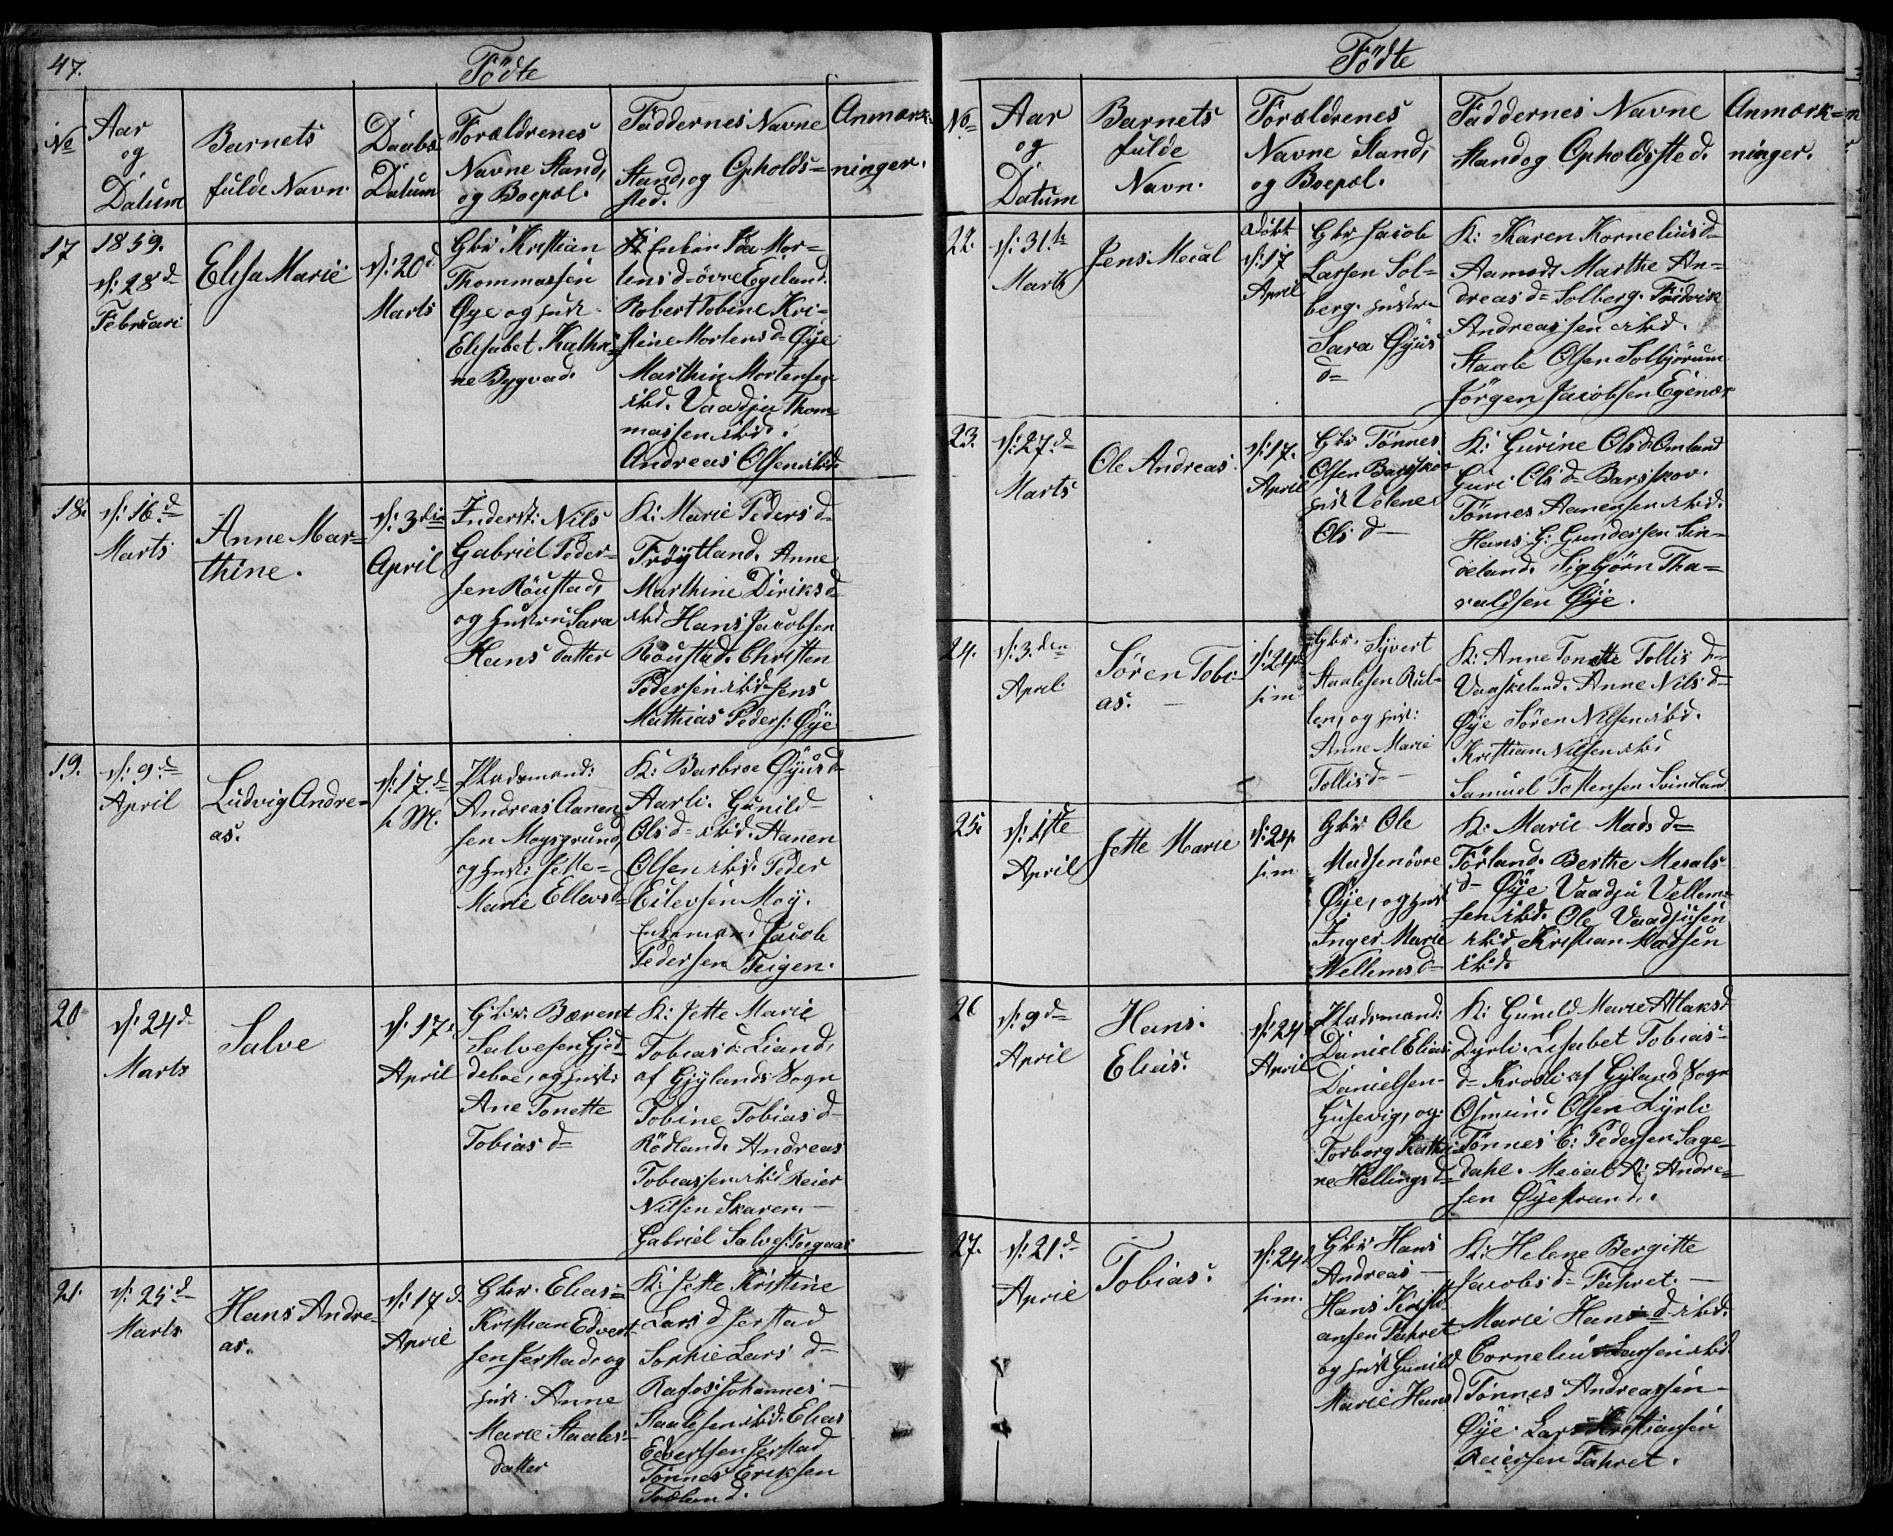 47.
Födte
No
Aar
og
Datum
Barnets
fulde Navn.
Daabs
Datum
Forældrenes
Navne Stand,
og Boepæl.
Faddernes Navne
Stand, og Opholds=
sted.
Anmærk=
ninger.
17
1859.
d: 28d
Februari
Elisa Marie
d: 20d
Marts
Gbr Kristian
Thommassen
Øye og hust.
Elisabet Kathri=
ne Bygvad.
K: Enken Mor=
tens d= övre Egeland.
Robert Tobine Kri=
stine Mortens d= Øye
Marthin Mortensen
ibid. Vaadju Thom
massen ibid.
Andreas Olsen ibid.
18.
d: 16.d
Marts
Anne Mar=
thine.
d: 3die
April
Inderst: Nils
Gabriel Peder=
sen Röustad,
og hustru Sara
Hans datter
K: Marie Peders d=
Fröytland. Anne
Marthine Diriks d=
ibid Hans Jacobsen
Röustad. Christen
Pedersen ibid Jens
Mathias Peders: Øye
19.
d: 9.d
April
Ludvig Andre=
as.
d: 17.d
s. M.
Pladsmand:
Andreas Aanen
sen Moysgrund,
og hust: Jette=
Marie Ellevs d=
K: Barbroe Øyus d=
Aarli. Gunild
Ols d= ibid. Aanen
Olsen ibid. Peder
Eilevsen Moy.
Enkemand Jacob
Pedersen Teigen.
20
d: 24d
Marts
Salve
d: 17.
April
Gbr: Bærent
Salvesen Gjed=
deboe, og hust:
Ane Tonette
Tobias d=
K: Jette Marie
Tobias d= Liand,
af Gjylands Sogn
Tobine Tobias d=
Rödland. Andreas
Tobiassen ibid Reier
Nilsen Skaren.
Gabriel Salves:
21.
d: 25d
Marts
Hans Andre=
as.
d: 17d
April
Gbr. Elias=
Kristian Edvert
sen Jerstad og
hust. Anne
Marie Staales=
datter
K: Jette Kristine
Lars d Jerstad
Sophie Lars d=
Rafos: Johannes
Staalesen ibid. Elias
Edvertsen Jerstad
Tönnes Eriksen
Træland.
Födte
No
Aar
og
Datum
Barnets
fulde
Navn.
Forældrenes
Navne Stand,
og Boepæl.
Faddernes Navne
Stand og Opholdssted.
Anmærk=
ninger.
22.
d: 31.te
Marts
Jens Meial
Döbt
d: 17
April
Gbr Jacob
Larsen Sol=
berg. hustru
Sara Øyus
d=
K: Karen Kornelius d=
Aamodt Marthe An=
dreas d= Solberg. Fridrik
Andreassen ibid.
Staale Olsen Solbjörum
Jörgen Jacobsen Egenæs
23.
d: 27.d
Marts
Ole Andreas.
d: 17.
April
Gbr Tönnes
Olsen Barskov
hust Velene
Ols d=
K: Gurine Ols d Omland
Guri Ols d= Barsskov.
Tönnes Aanensen ibid.
Hans G: Gundersen Sin=
deland. Sigbjörn Tha=
raldsen Øye.
24.
d: 3.den
April
Sören Tobi=
as.
d: 24
s. m.
Gbr. Syvert
Staalesen Rul=
len, og hust:
Anne Marie
Tollis d=
K: Anne Tonette Tollis d=
Vaaskeland. Anne Nils d=
Øye Sören Nilsen ibid.
Kristian Nilsen ibid
Samuel Tostensen Svindland
25.
d: 1ste
April
Jette Marie
d: 24
s. m.
Gbr Ole
Madsen övre
Øye, og hust
Inger Marie
Wellems d=
K: Marie Mads d=
Förland. Berthe Meials
d= Øye Vaadju Vellem=
sen ibid. Ole Vaadjusen
ibid Kristian Madsen
ibid.
26
d: 9d
April
Hans.
Elias.
d: 24
April
Pladsmand:
Daniel Elias
Danielsen
Gusevig, og
Torborg Kathri
ne Hellings d=
K: Gunild Marie Atlaks d
Dyrli. Lisabet Tobias=
d= Krosli af Gyland Sogn
Osmund Olsen Lyrli
Tönnes E: Pedersen Sage=
dahl. Meial A: Andre=
sen Øyestrand.
27.
d: 21.d
April
Tobias.
d: 24d
s. m.
Gbr Hans
Andreas
Hans Kristi
ansen Fahret
og hust Gunild
Marie Hans d
K: Helene Bergitte
Jacobs d= Fahret.
Marie Hans d= ibid.
Cornelius Larsen ibid.
Tönnes Andreassen
Øye. Lars Kristiansen
Reiersen Fahret.